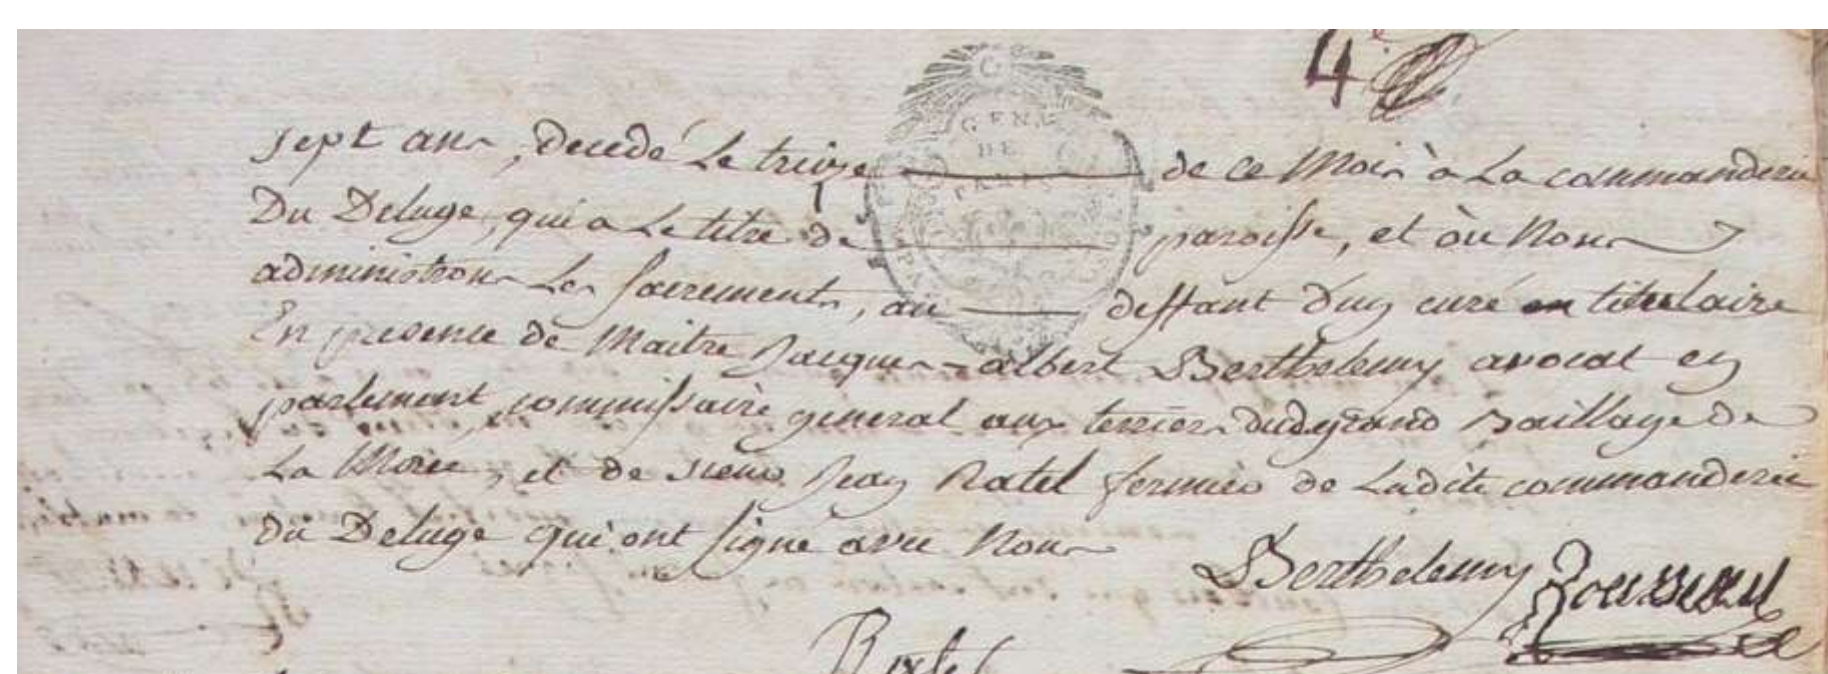 4e
GEN.
DE
PARIS
sept ans, decedé Le treize de ce Mois à La commanderie
Du Deluge, qui a Le titre de paroisse, et où Nous
administrons Les sacrements, au deffaut d'un curé en titulaire
En presence de Maitre Jacques-albert Berthelemy avocat en
parlement, commissaire general aux terriers dudt grand Baillage de
La Morée, et de sieur Jean Ratel fermier de Ladite commanderie
du Deluge qui ont signé avec Nous
Berthelemy Rousseau
Ratel